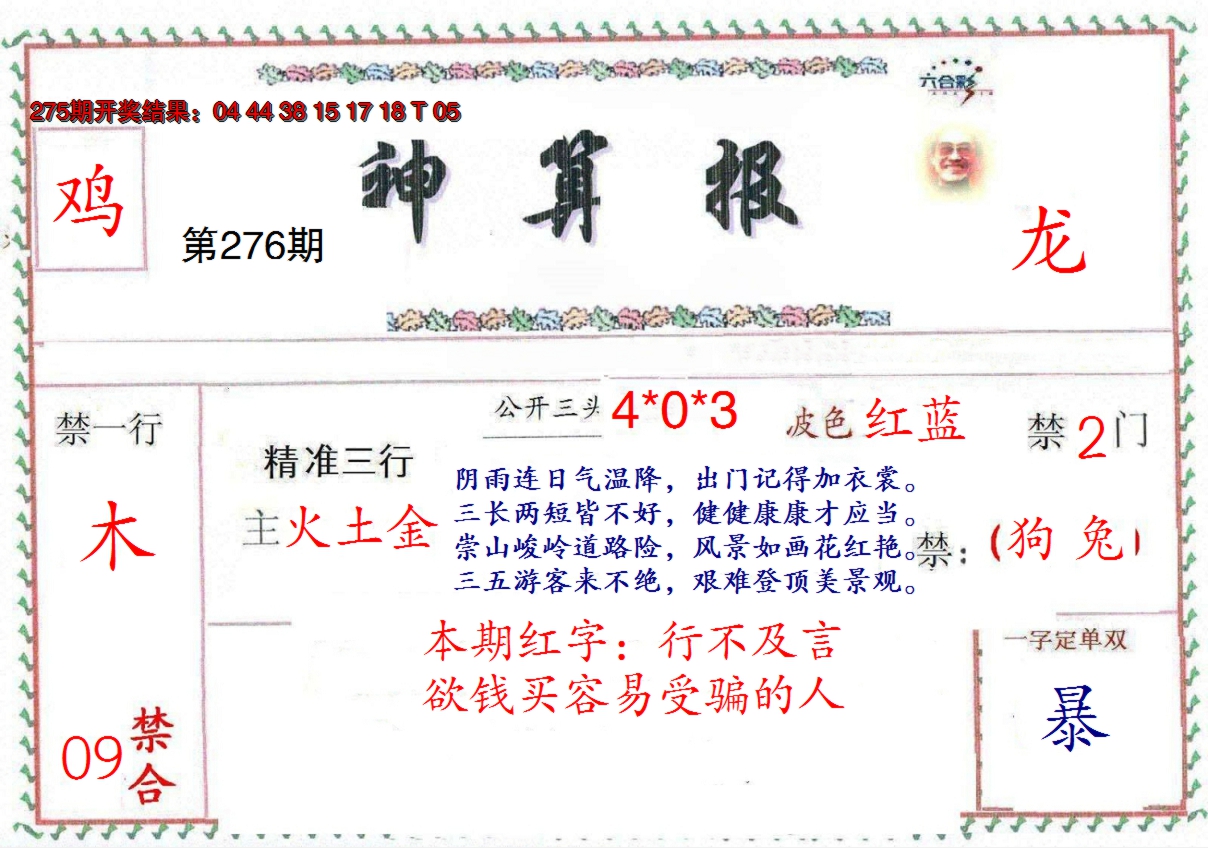 六合彩
275期开奖结果：04 44 38 15 17 18 T 05
鸡
神算报
第276期
龙
禁一行
木
09
禁合
精准三行
主火土金
公开三头 4*0*3
波色 红蓝
禁2门
阴雨连日气温降，出门记得加衣裳。
三长两短皆不好，健健康康才应当。
崇山峻岭道路险，风景如画花红艳。
三五游客来不绝，艰难登顶美景观。
禁：(狗 兔)
本期红字：行不及言
欲钱买容易受骗的人
一字定单双
暴